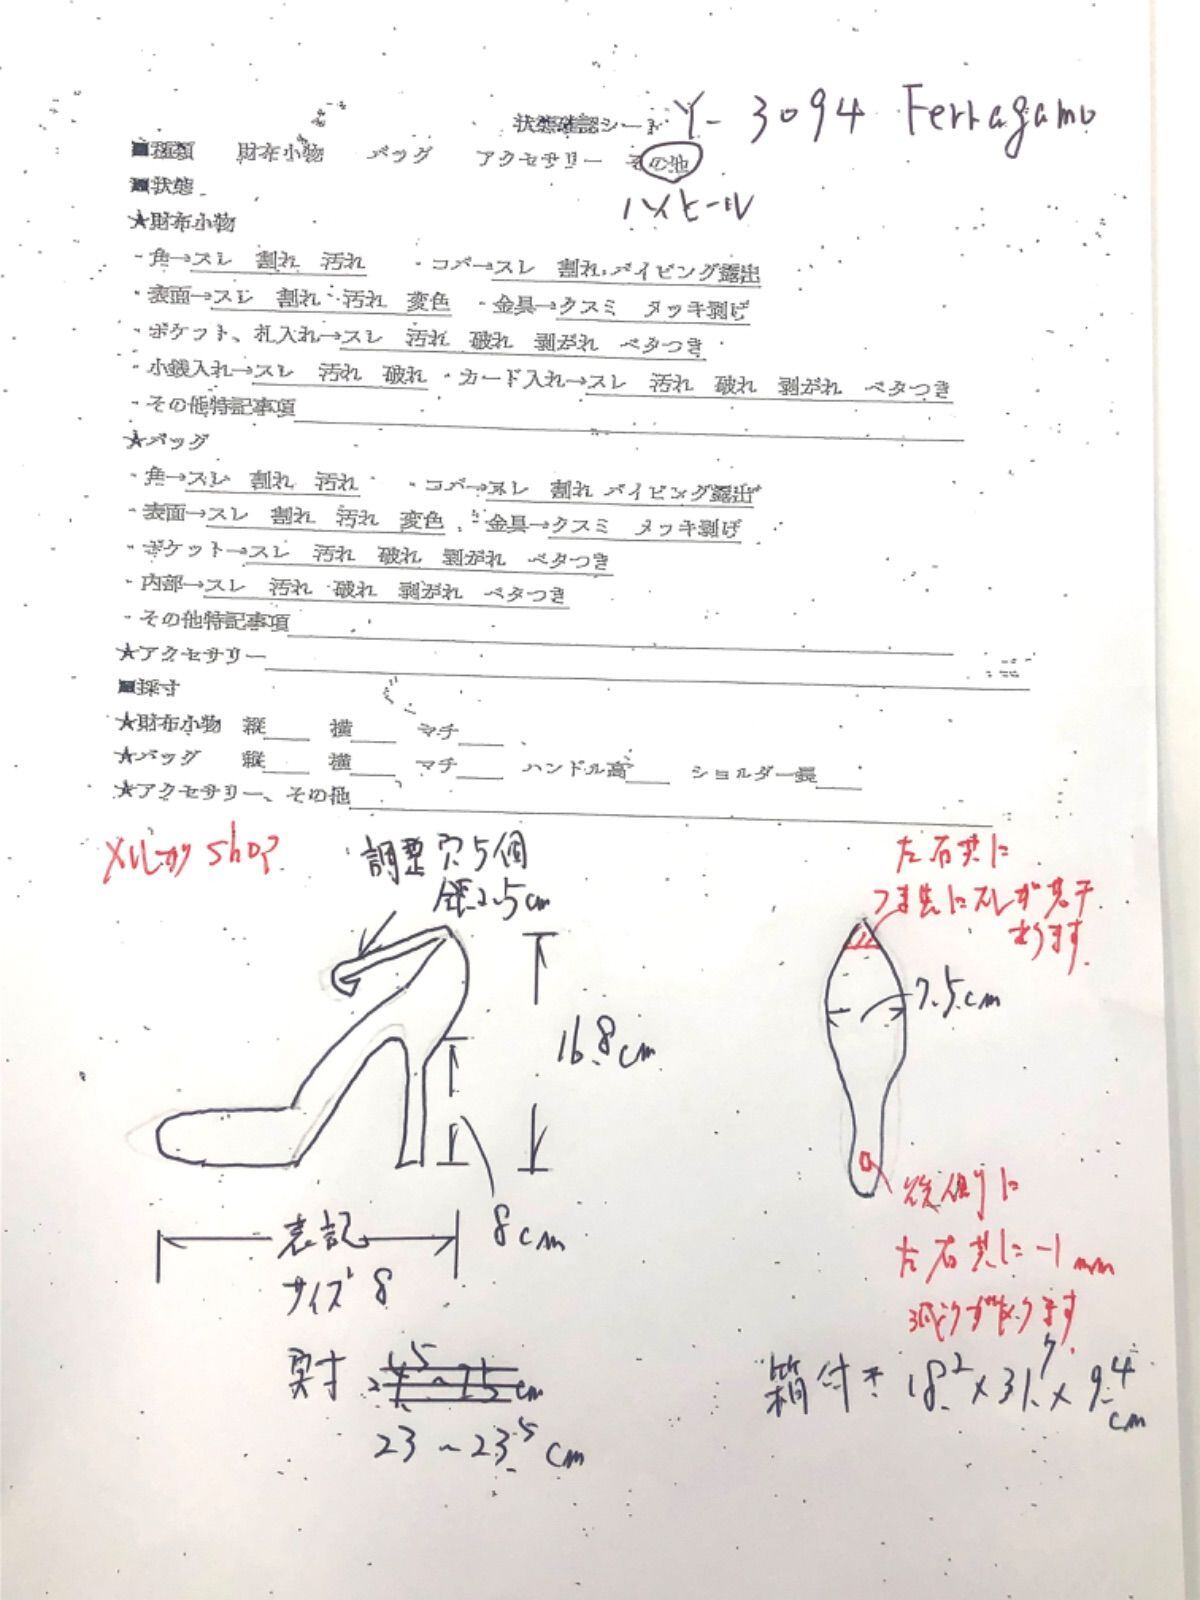 Y-3094 Ferragamo
状態確認シート
■種類 財布小物 バッグ アクセサリー その他
ハイヒール
■状態
★財布小物
・角→スレ 割れ 汚れ ・コバ→スレ 割れ パイピング露出
・表面→スレ 割れ 汚れ 変色 ・金具→クスミ メッキ剥げ
・ポケット、札入れ→スレ 汚れ 破れ 剥がれ ベタつき
・小銭入れ→スレ 汚れ 破れ ・カード入れ→スレ 汚れ 破れ 剥がれ ベタつき
・その他特記事項
★バッグ
・角→スレ 割れ 汚れ ・コバ→スレ 割れ パイピング露出
・表面→スレ 割れ 汚れ 変色 ・金具→クスミ メッキ剥げ
・ポケット→スレ 汚れ 破れ 剥がれ ベタつき
・内部→スレ 汚れ 破れ 剥がれ ベタつき
・その他特記事項
★アクセサリー
■採寸
★財布小物 縦 横 マチ
★バッグ 縦 横 マチ ハンドル高 ショルダー長
★アクセサリー、その他
メルカリ shop
調整穴5個
2.5cm
16.8cm
8cm
表記
サイズ 8
実寸
23~23.5cm
左右共に
つま先にスレが若干
あります
7.5cm
後側に
左右共に-1mm
減りがあります
箱付き 18.2×31.7×9.4
cm